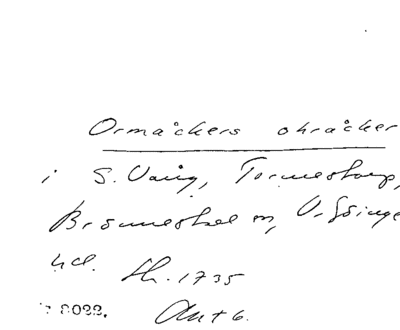 Ormåckers ohråcker
i S. Vaing, Tormestorp,
Brönnestad m, V. Göinge
hd. th. 1735
8022. Ant 6.